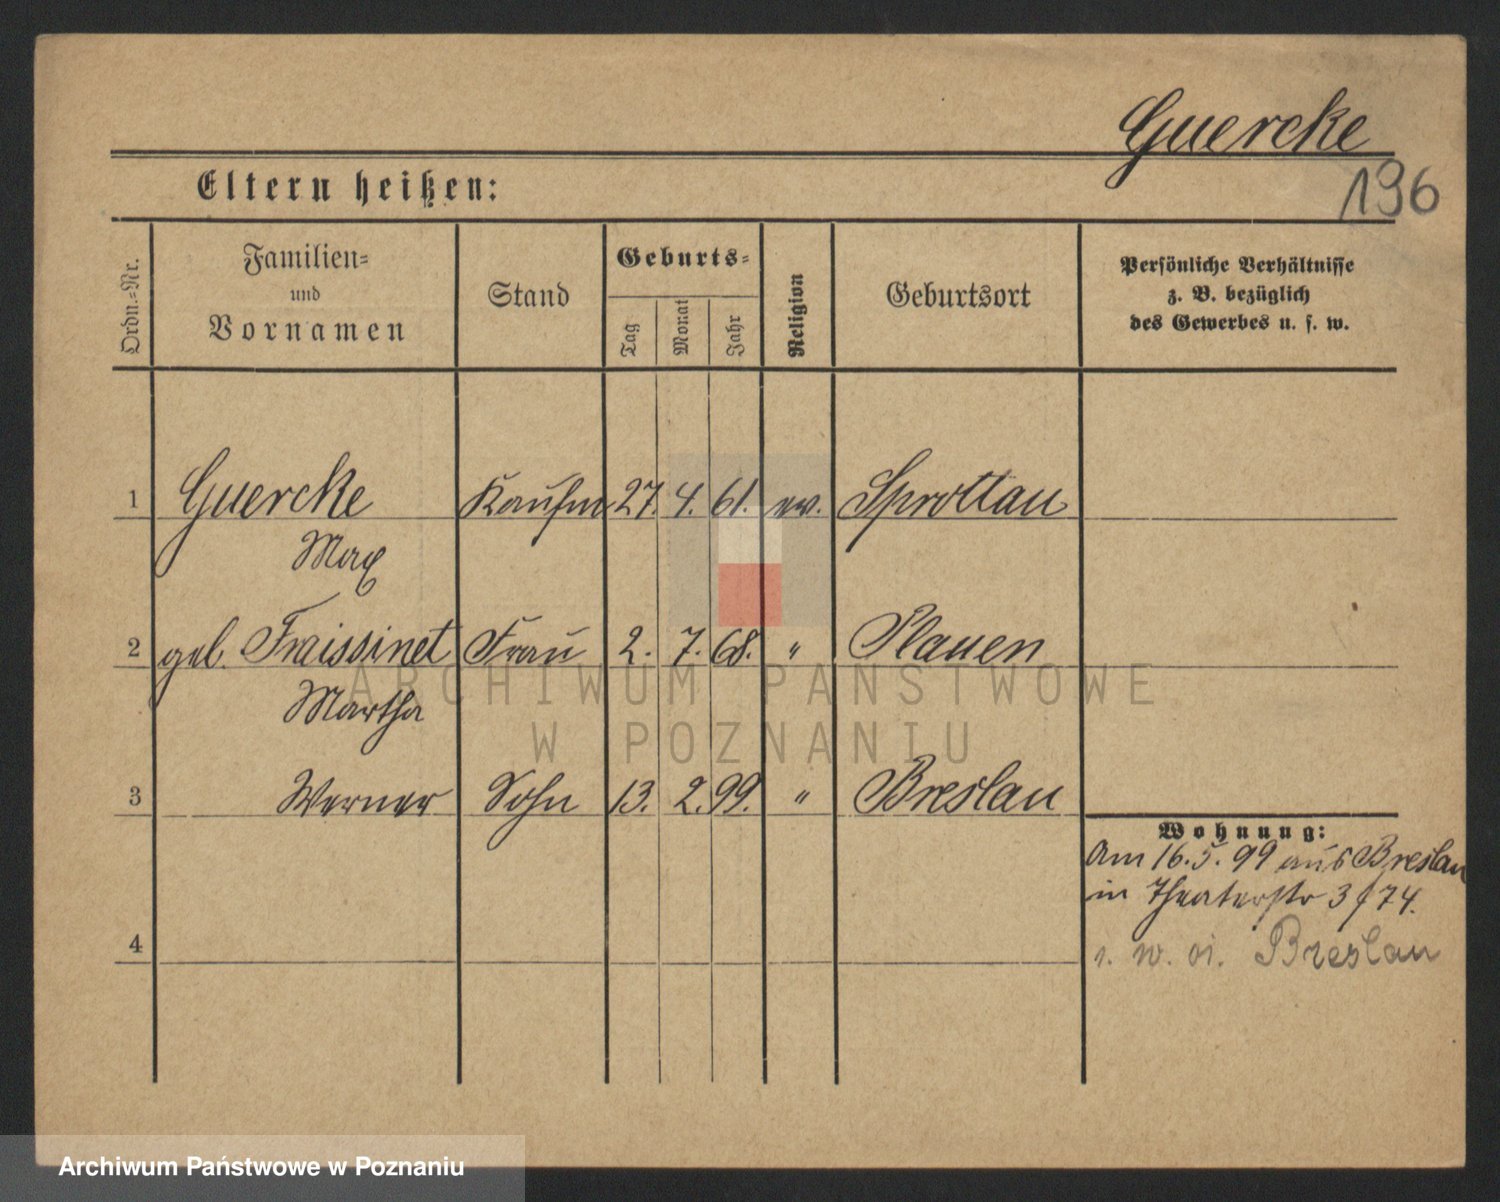 Guercke
196
Eltern heißen:
Ordn.-Nr.
Familien-
und
Vornamen
Stand
Geburts-
Tag
Monat
Jahr
Religion
Geburtsort
Persönliche Verhältnisse
z. B. bezüglich
des Gewerbes u. s. w.
1 Guercke Kaufm 27. 4. 61. ev. Sprottau
Max
2 geb. Fraissinet Frau 2. 7. 68. " Plauen
Martha
3 Werner Sohn 13. 2. 99. " Breslau
Wohnung:
Am 16.5.99 aus Breslau
in Theaterstr 3 / 74.
4
Breslau
ARCHIWUM PAŃSTWOWE
W POZNANIU
Archiwum Państwowe w Poznaniu